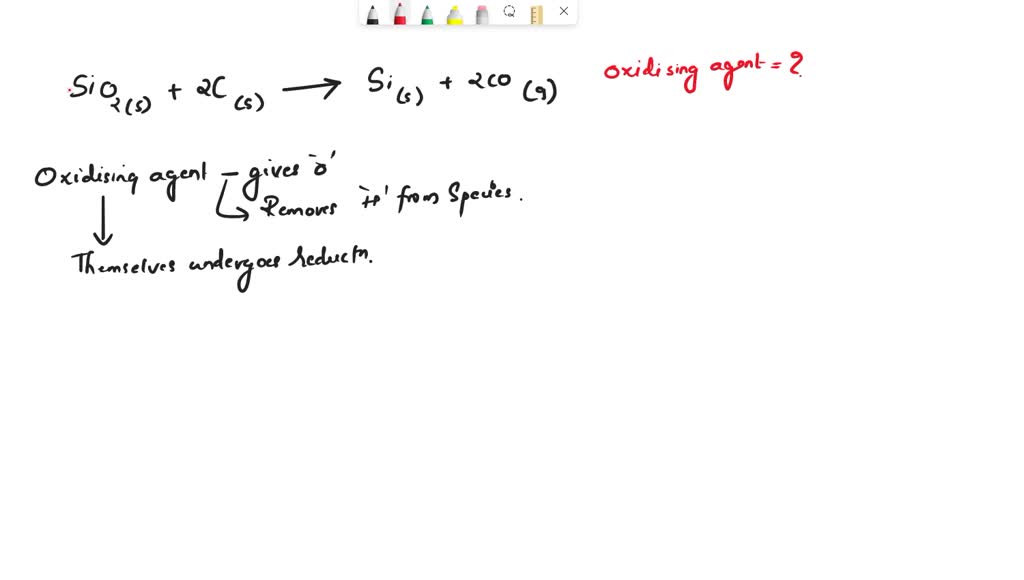 SiO2(s) + 2C(s) → Si(s) + 2CO(g)
Oxidising agent = ?
Oxidising agent – gives 'O'
Removes 'H' from Species.
Themselves undergoes reductn.